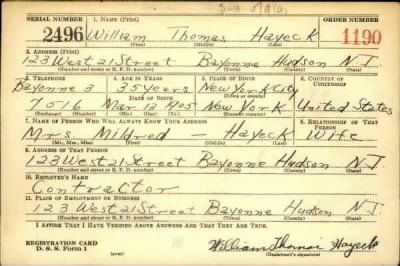 SERIAL NUMBER 1. NAME (Print) ORDER NUMBER
2496 William Thomas Hayeck 1190
(First) (Middle) (Last)
2. ADDRESS (Print)
123 West 21 Street Bayonne Hudson N.J.
(Number and street or R. F. D. number) (Town) (County) (State)
3. TELEPHONE 4. AGE IN YEARS 5. PLACE OF BIRTH 6. COUNTRY OF CITIZENSHIP
Bayonne 3 35 years New York City
DATE OF BIRTH
7516 Mar. 12 1905 New York United States
(Exchange) (Number) (Mo.) (Day) (Yr.) (State or country)
7. NAME OF PERSON WHO WILL ALWAYS KNOW YOUR ADDRESS 8. RELATIONSHIP OF THAT PERSON
Mrs. Mildred — Hayeck Wife
(Mr., Mrs., Miss) (First) (Middle) (Last)
9. ADDRESS OF THAT PERSON
123 West 21 Street Bayonne Hudson N.J.
(Number and street or R. F. D. number) (Town) (County) (State)
10. EMPLOYER'S NAME
Contractor
11. PLACE OF EMPLOYMENT OR BUSINESS
123 West 21 Street Bayonne Hudson N.J.
(Number and street or R. F. D. number) (Town) (County) (State)
I AFFIRM THAT I HAVE VERIFIED ABOVE ANSWERS AND THAT THEY ARE TRUE.
REGISTRATION CARD
D. S. S. Form 1 William Thomas Hayeck
(Registrant's signature)